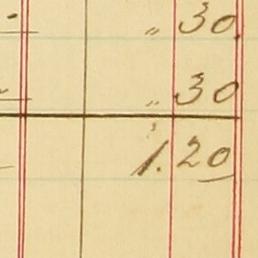 „ 30.
„ 30
1.20